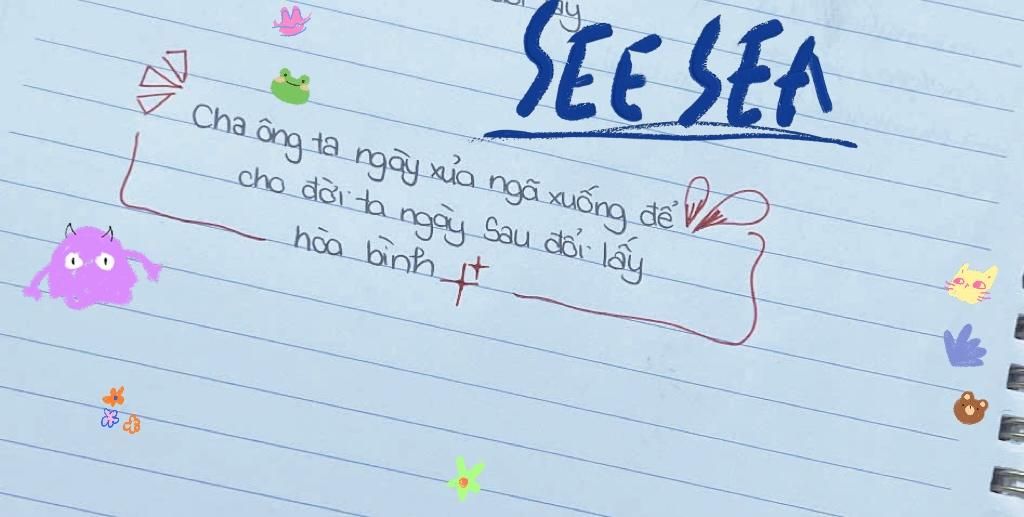 SEE SEA
Cha ông ta ngày xủa ngã xuống để
cho đời ta ngày sau đổi lấy
hòa bình